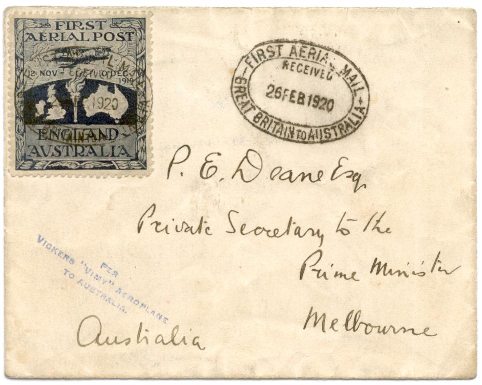 FIRST
AERIAL POST
12 NOV - 10 DEC.
1919
1920
ENGLAND
AUSTRALIA
FIRST AERIAL MAIL
RECEIVED
26 FEB 1920
GREAT BRITAIN TO AUSTRALIA
P. E. Deane Esq.
Private Secretary to the
Prime Minister
Melbourne
Australia
PER
VICKERS "VIMY" AEROPLANE
TO AUSTRALIA.